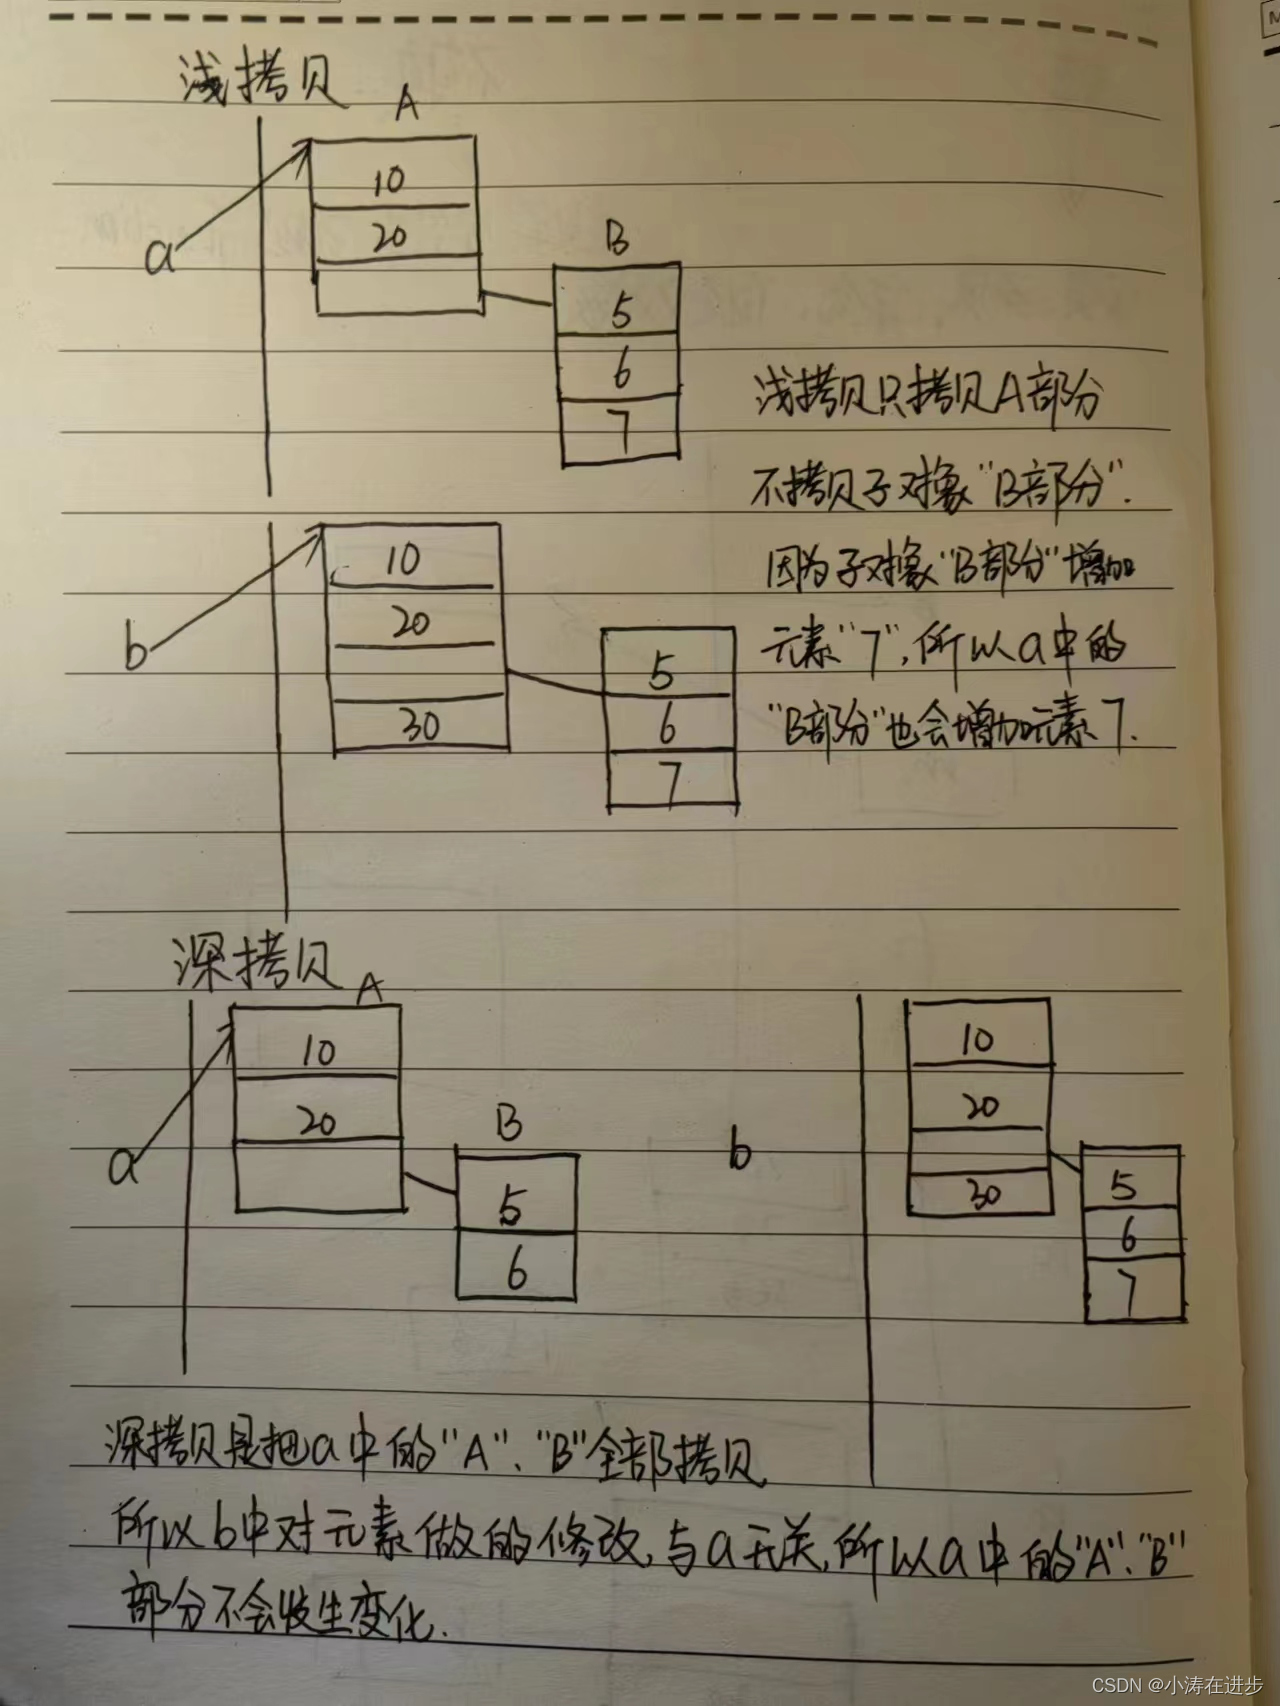 浅拷贝
A
10
20
a
B
5
6
7
浅拷贝只拷贝A部分
不拷贝子对象"B部分".
因为子对象"B部分"增加
元素"7",所以a中的
"B部分"也会增加元素7.
b
10
20
30
5
6
7
深拷贝
A
10
20
a
B
5
6
b
10
20
30
5
6
7
深拷贝是把a中的"A"、"B"全部拷贝
所以b中对元素做的修改,与a无关,所以a中的"A"、"B"
部分不会发生变化.
CSDN @小涛在进步